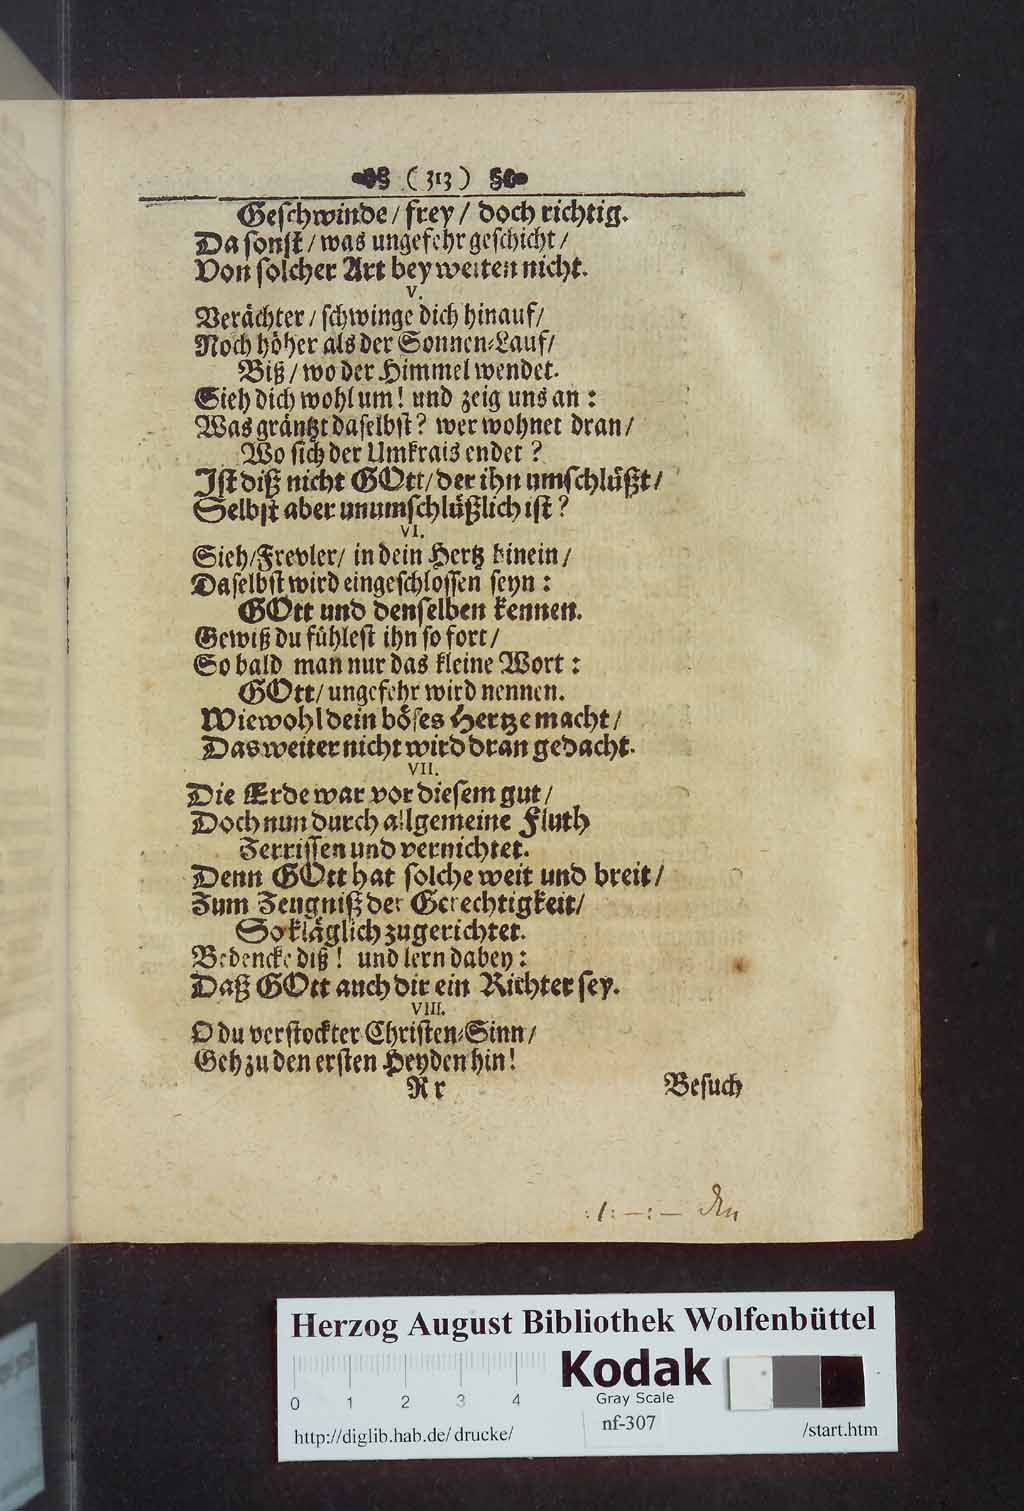 ( 313 )
Geschwinde / frey / doch richtig.
Da sonst / was ungefehr geschicht /
Von solcher Art bey weiten nicht.
V.
Verächter / schwinge dich hinauf /
Noch höher als der Sonnen-Lauf /
Biß / wo der Himmel wendet.
Sieh dich wohl um! und zeig uns an:
Was gräntzt daselbst? wer wohnet dran /
Wo sich der Umkrais endet?
Ist diß nicht GOtt / der ihn umschlüßt /
Selbst aber unumschlüßlich ist?
VI.
Sieh / Frevler / in dein Hertz hinein /
Daselbst wird eingeschlossen seyn:
GOtt und denselben kennen.
Gewiß du fühlest ihn so fort /
So bald man nur das kleine Wort:
GOtt / ungefehr wird nennen.
Wiewohl dein böses Hertze macht /
Das weiter nicht wird dran gedacht.
VII.
Die Erde war vor diesem gut /
Doch nun durch allgemeine Fluth
Zerrissen und vernichtet.
Denn GOtt hat solche weit und breit /
Zum Zeugniß der Gerechtigkeit /
So kläglich zugerichtet.
Bedencke diß! und lern dabey:
Daß GOtt auch dir ein Richter sey.
VIII.
O du verstockter Christen-Sinn /
Geh zu den ersten Heyden hin!
Rr Besuch
Herzog August Bibliothek Wolfenbüttel
Kodak
Gray Scale
0 1 2 3 4
nf-307
http://diglib.hab.de/drucke/ /start.htm